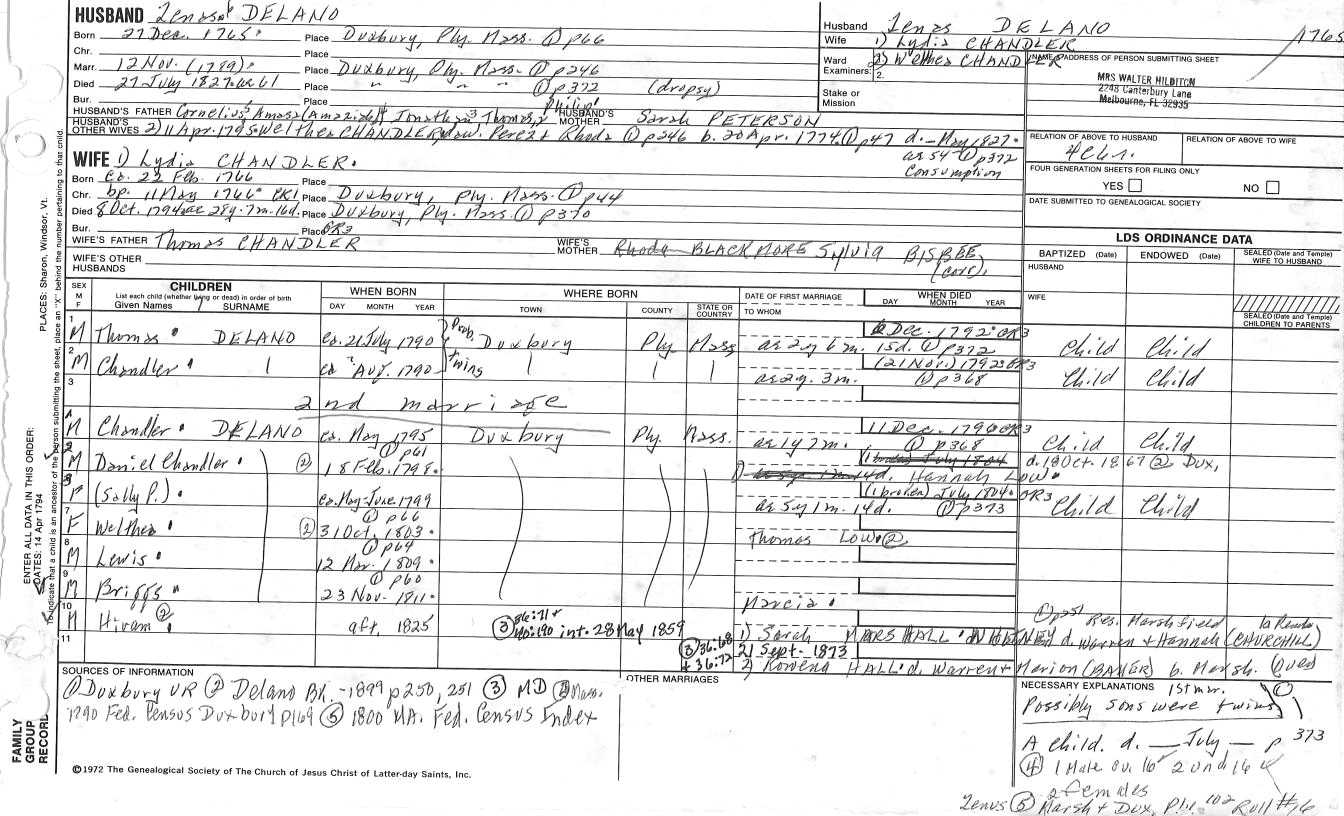 HUSBAND Zenas DELANO
Born 27 Dec. 1765 Place Duxbury, Ply. Mass. ① p66
Chr. Place
Marr. 12 Nov. (1789) Place Duxbury, Ply. Mass. ① p246
Died 27 July 1827 ae 61 Place " " " ① p372 (dropsy)
Bur. Place
HUSBAND'S FATHER Cornelius5 Amasa (Amaziah)4 Jonathan3 Thomas,2 Philip1 HUSBAND'S MOTHER Sarah PETERSON
HUSBAND'S OTHER WIVES 2) 11 Apr. 1795 Welthea CHANDLER, dau. Perez + Rhoda ① p246 b. 20 Apr. 1774 ① p47 d. - May 1827
as 54 ① p372
Consumption
Husband Zenas DELANO
Wife 1) Lydia CHANDLER
2) Welthea CHANDLER
Ward
Examiners: 2.
Stake or Mission
1765
NAME & ADDRESS OF PERSON SUBMITTING SHEET
MRS WALTER HILDITCH
2248 Canterbury Lane
Melbourne, FL 32935
RELATION OF ABOVE TO HUSBAND RELATION OF ABOVE TO WIFE
FOUR GENERATION SHEETS FOR FILING ONLY
YES NO
DATE SUBMITTED TO GENEALOGICAL SOCIETY
WIFE 1) Lydia CHANDLER.
Born ca. 22 Feb. 1766 Place
Chr. bp. 11 May 1766 CK1 Place Duxbury, Ply. Mass. ① p44
Died 8 Oct. 1794 ae 28y. 7m. 16d. Place Duxbury, Ply. Mass. ① p370
Bur. Place GR3
WIFE'S FATHER Thomas CHANDLER WIFE'S MOTHER Rhoda BLACKMORE Sylvia BISBEE
(corr.)
WIFE'S OTHER HUSBANDS
LDS ORDINANCE DATA
BAPTIZED (Date) ENDOWED (Date) SEALED (Date and Temple) WIFE TO HUSBAND
HUSBAND
WIFE
SEALED (Date and Temple) CHILDREN TO PARENTS
SEX M F
CHILDREN
List each child (whether living or dead) in order of birth
Given Names SURNAME
WHEN BORN
DAY MONTH YEAR
WHERE BORN
TOWN COUNTY STATE OR COUNTRY
DATE OF FIRST MARRIAGE
TO WHOM
WHEN DIED
DAY MONTH YEAR
1 M Thomas DELANO ca. 21 July 1790 Prob. twins Duxbury Ply. Mass Dec. 1792 GR3
as 2y 6m. 15d. ① p372 Child Child
2 M Chandler ca " Aug. 1790 (21 Nov.) 1792 GR3
as 2y. 3m. ① p368 Child Child
3
2nd marriage
M Chandler DELANO ca. May 1795 Duxbury Ply. Mass. 11 Dec. 1796 GR3
as 1y 7m. ① p368 Child Child
① p61
M Daniel Chandler ② 18 Feb. 1798 1) Hannah LOW d. 18 Oct. 1867 ② Dux,
F (Sally P.) ca. May-June 1799 (1 broken) July 1804 GR3
as 5y 1m. 14d. ① p373 Child Child
① p66
7 F Welthea ② 31 Oct. 1803 Thomas LOW ②
① p64
8 M Lewis 12 Mar. 1809
① p60
9 M Briggs 23 Nov. 1811 Marcia
10 M Hiram ② aft. 1825 ③ int. 28 May 1859 1) Sarah MARSHALL d. Warren + Hannah (CHURCHILL)
① p251 Res. Marshfield
11 ③ 36:68 + 36:72 2) Sept. 1873
2) Rowena HALL d. Warren + Marion (BAKER) b. Marsh.
SOURCES OF INFORMATION
① Duxbury VR ② Delano BK. - 1899 p250, 251 ③ MD ④ Mass.
1790 Fed. Census Duxbury p169 ⑤ 1800 MA. Fed. Census Index
OTHER MARRIAGES
NECESSARY EXPLANATIONS 1st mar.
Possibly sons were twins
A child. d. — July — p 373
④ 1 Male ov. 16 2 und 16
2 females
Zenus ⑤ Marsh + Dux, Ply. 102 Roll #16
©1972 The Genealogical Society of The Church of Jesus Christ of Latter-day Saints, Inc.
FAMILY GROUP RECORD
ENTER ALL DATA IN THIS ORDER:
DATES: 14 Apr 1794
PLACES: Sharon, Windsor, Vt.
To indicate that a child is an ancestor of the person submitting the sheet, place an "X" behind the number pertaining to that child.